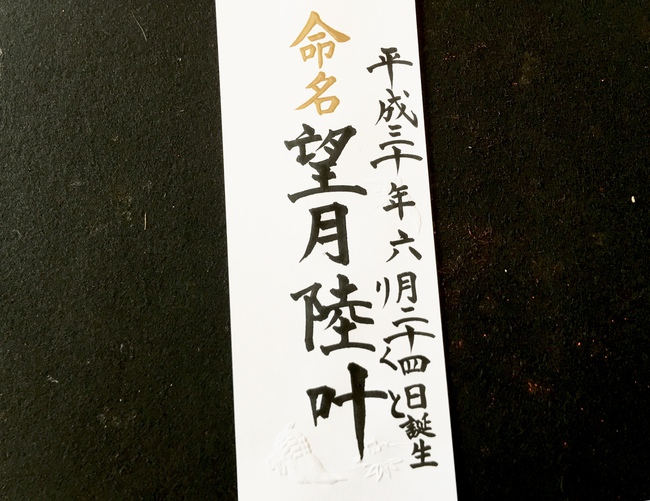 平成三十年六月二十四日誕生
命名 望月陸叶
りくと